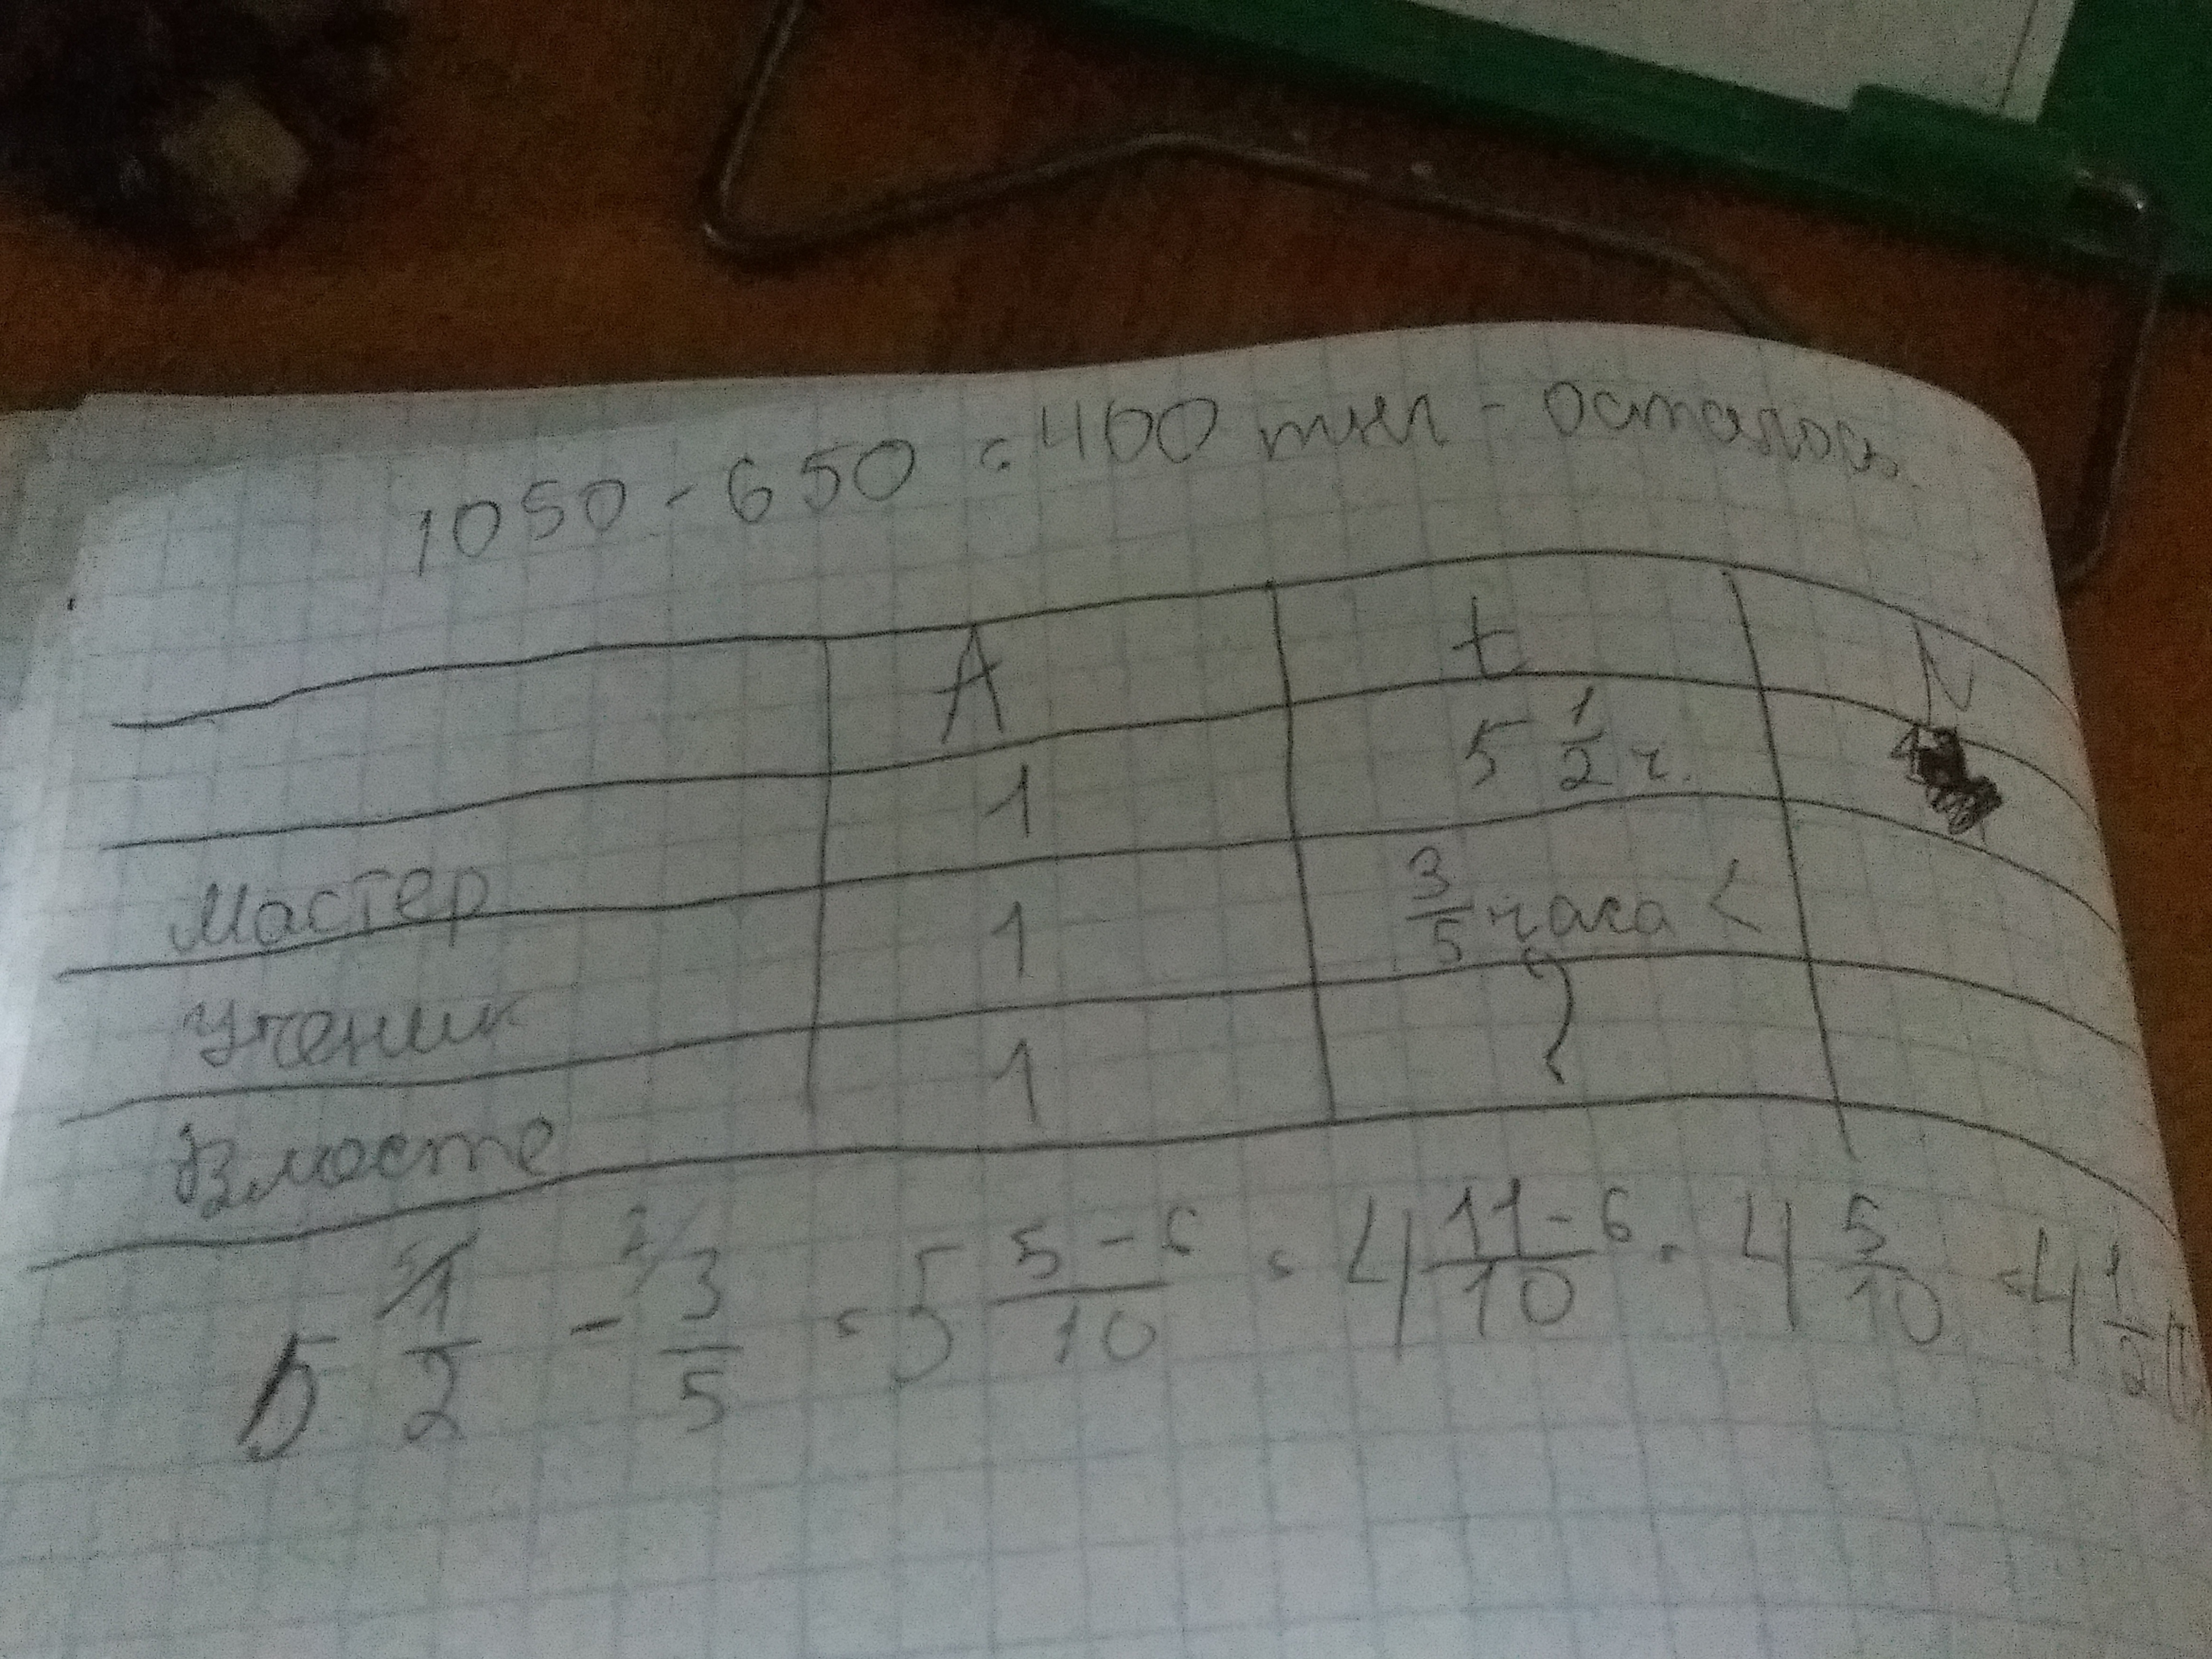 1050 - 650 = 400 тыс - осталось
A t N
1 5 1/2 ч.
Мастер 1 3/5 часа <
Ученик 1 ?
Вместе 1
5 1/2 - 3/5 = 5 5-6/10 = 4 11-6/10 = 4 5/10 = 4 1/2